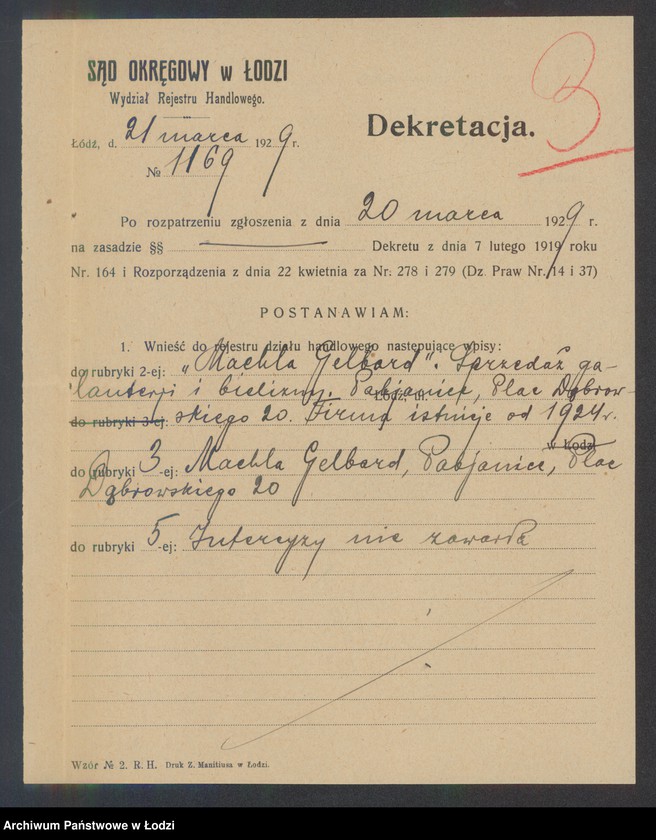 SĄD OKRĘGOWY w ŁODZI
Wydział Rejestru Handlowego.
Łódź, d. 21 marca 1929 r.
№ 1169
Dekretacja.
3
Po rozpatrzeniu zgłoszenia z dnia 20 marca 1929 r.
na zasadzie §§ — Dekretu z dnia 7 lutego 1919 roku
Nr. 164 i Rozporządzenia z dnia 22 kwietnia za Nr. 278 i 279 (Dz. Praw Nr. 14 i 37)
POSTANAWIAM:
1. Wnieść do rejestru działu handlowego następujące wpisy:
do rubryki 2-ej: „Machla Gelbard". Sprzedaż ga-
lanterji i bielizny. Pabjanice, Plac Dąbrow-
Łódź, ul.
do rubryki 3-ej: skiego 20. Firma istnieje od 1924 r.
w Łodzi
do rubryki 3-ej: Machla Gelbard, Pabjanice, Plac
Dąbrowskiego 20
do rubryki 5-ej: Intercyzy nie zawarła
Wzór № 2. R. H. Druk Z. Manitiusa w Łodzi.
Archiwum Państwowe w Łodzi